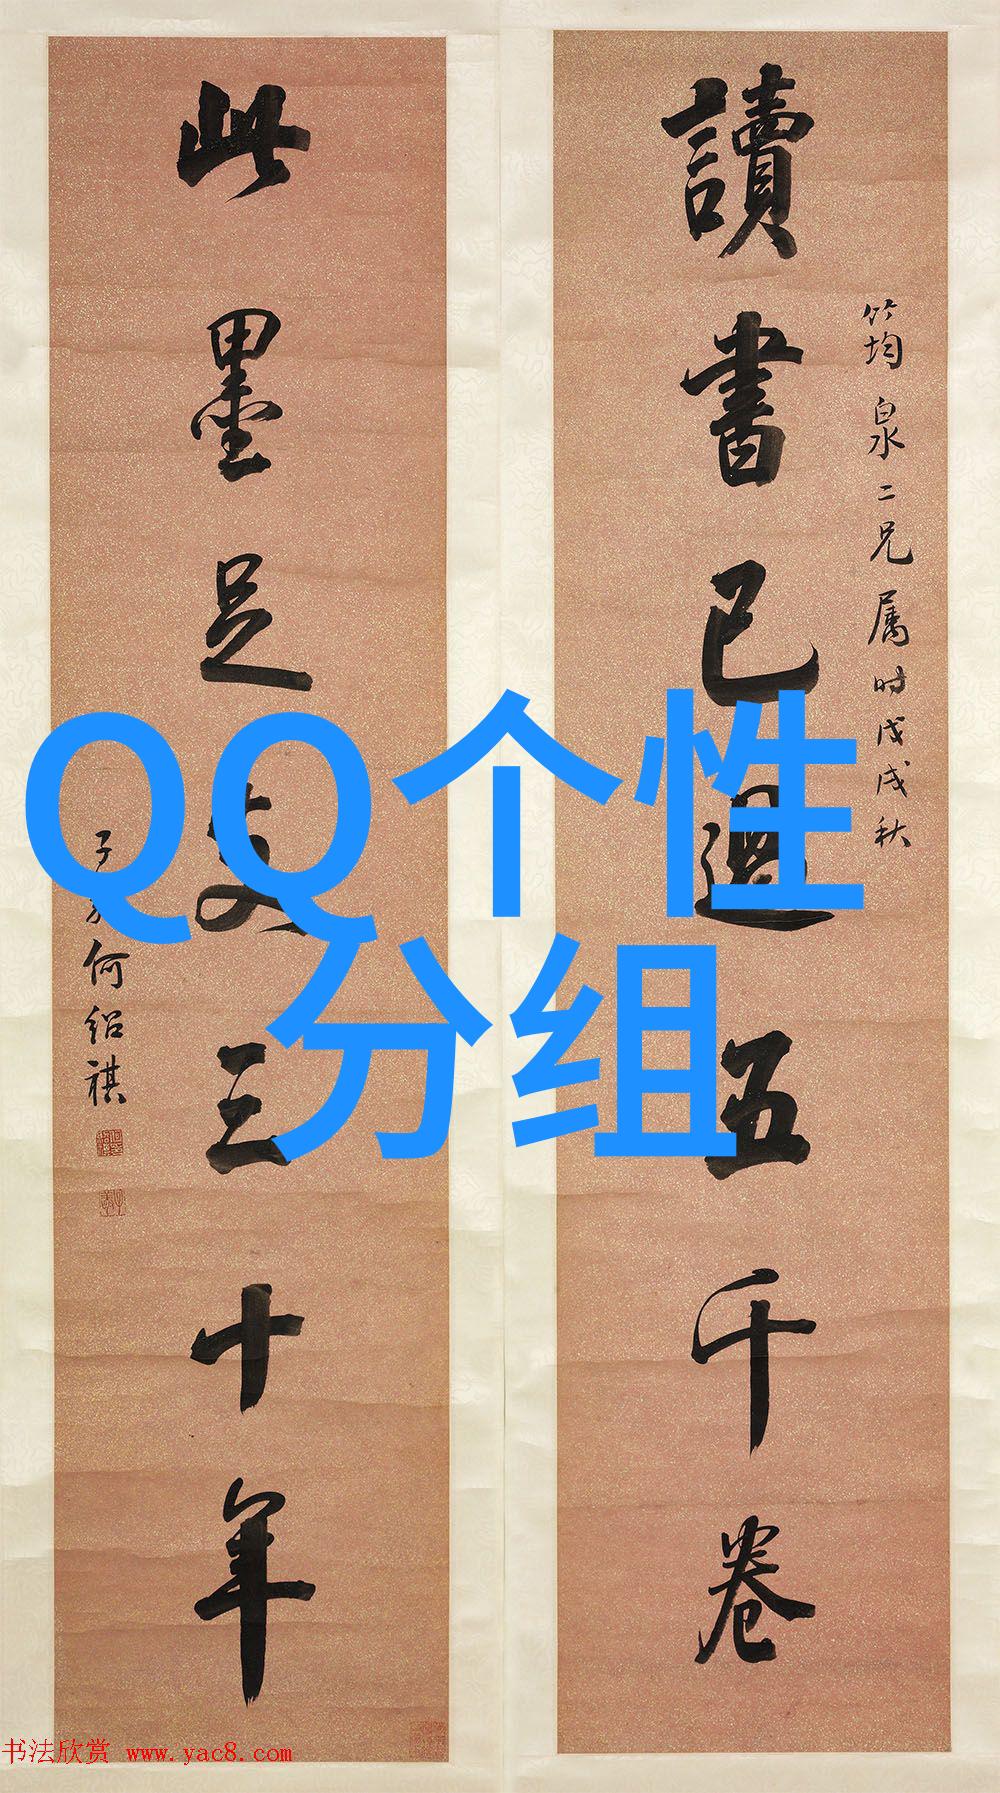 讀書已過五千卷
竹均泉二兄属时戊戌秋
此墨足支三十年
何绍祺
QQ个性
分组
书法欣赏 www.yac8.com